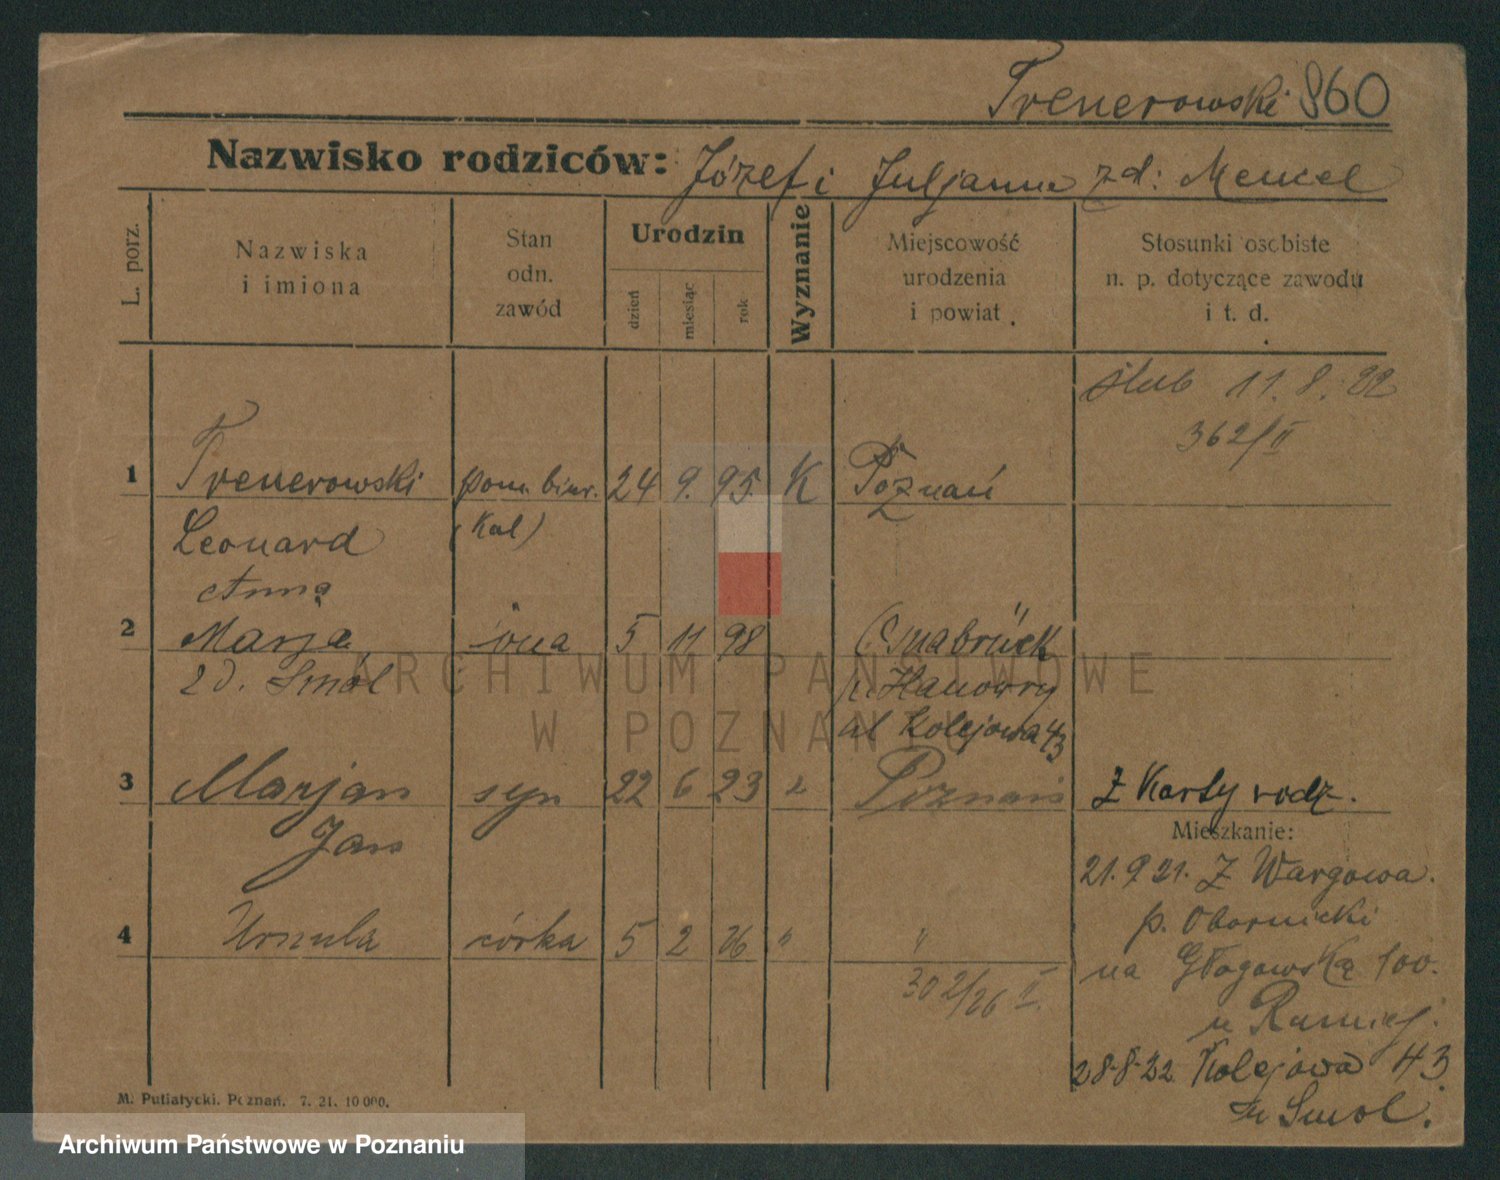 Trenerowski 860
Nazwisko rodziców: Józef i Juljanna zd: Mencel
L. porz.
Nazwiska
i imiona
Stan
odn.
zawód
Urodzin
dzień
miesiąc
rok
Wyznanie
Miejscowość
urodzenia
i powiat.
Stosunki osobiste
n. p. dotyczące zawodu
i t. d.
ślub 11. 8. 22
362/II
1 Trenerowski pom. biur. 24 9. 95. K Poznań
Leonard (kol)
Anna
2 Marja żona 5 11 98 Osnabrück
zd. Smól p. Hanowry
ul Kolejowa 43
3 Marjan syn 22 6 23 " Poznań Z Karty rodz.
Jan
Mieszkanie:
21. 9 21. Z Wargowa.
p. Obornicki
4 Urszula córka 5 2 26 " "
na Głogowską 100.
302/26 II.
u
28-8-22 Kolejowa 43
u Smol.
M. Putiatycki. Poznań. 7. 21. 10 000.
ARCHIWUM PAŃSTWOWE
W POZNANIU
Archiwum Państwowe w Poznaniu